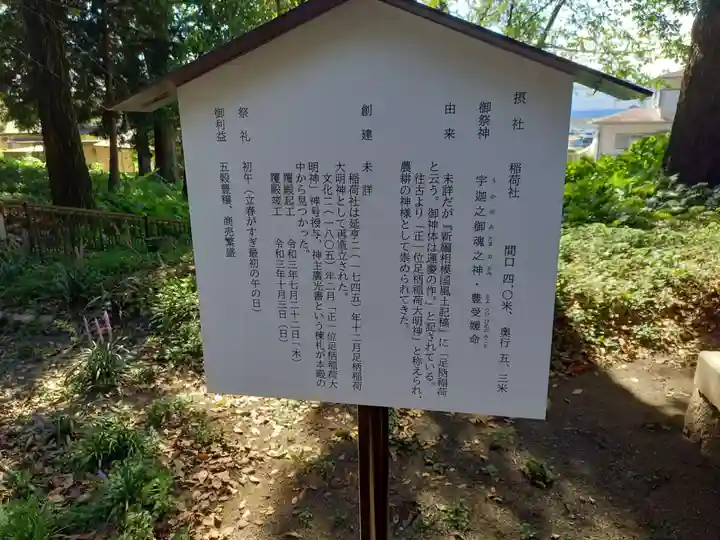 摂社　稲荷社　間口 四、〇米、奥行 五、三米
御祭神　宇迦之御魂之神・豊受媛命
うかのみたまのかみ
とようけひめのみこと
由来　未詳だが『新編相模国風土記稿』に「足柄稲荷
と云う。御神体は運慶の作。」と記されている。
往古より「正一位足柄稲荷大明神」と称えられ、
農耕の神様として崇められてきた。
創建　未詳
稲荷社は延享二（一七四五）年十二月足柄稲荷
大明神として再建立された。
文化二（一八〇五）年二月「正一位足柄稲荷大
明神」神号授与、神主廣光善という棟札が本殿の
中から見つかった。
覆殿起工　令和三年七月二十二日（木）
覆殿竣工　令和三年十月三日（日）
祭礼　初午（立春がすぎ最初の午の日）
御利益　五穀豊穣、商売繁盛